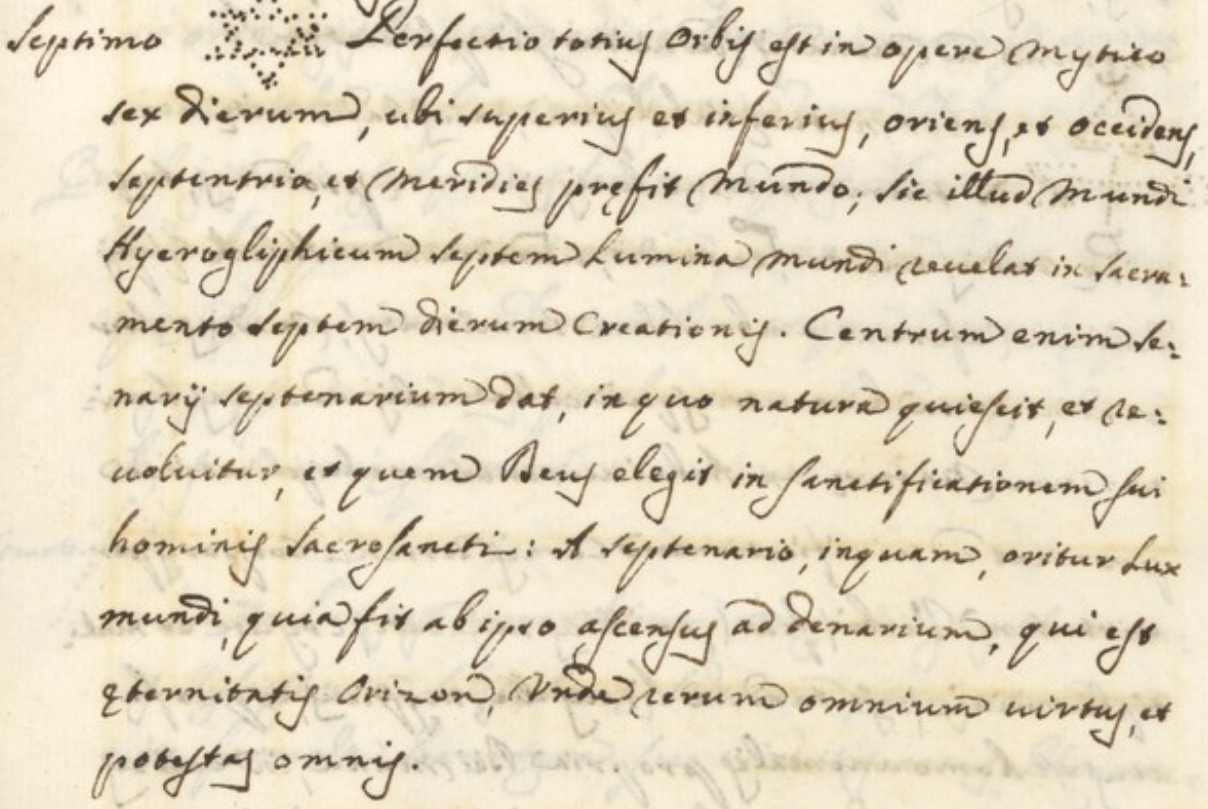 Septimo Perfectio totius Orbis est in opere Mytico
sex dierum, ubi superius et inferius, oriens, et occidens,
septentrio, et Meridies pręfit Mundo; Sic illud Mundi
Hyerogliphicum septem Lumina mundi reuelat in Sacra:
mento septem dierum Creationis. Centrum enim Se:
narij septenarium dat, in quo natura quiescit, et re:
uoluitur, et quem Deus elegit in Sanctificationem sui
hominis Sacrosancti: A septenario, inquam, oritur Lux
mundi, quia fit ab ipso ascensus ad denarium, qui est
ęternitatis Orizon, Vnde rerum omnium uirtus, et
potestas omnis.